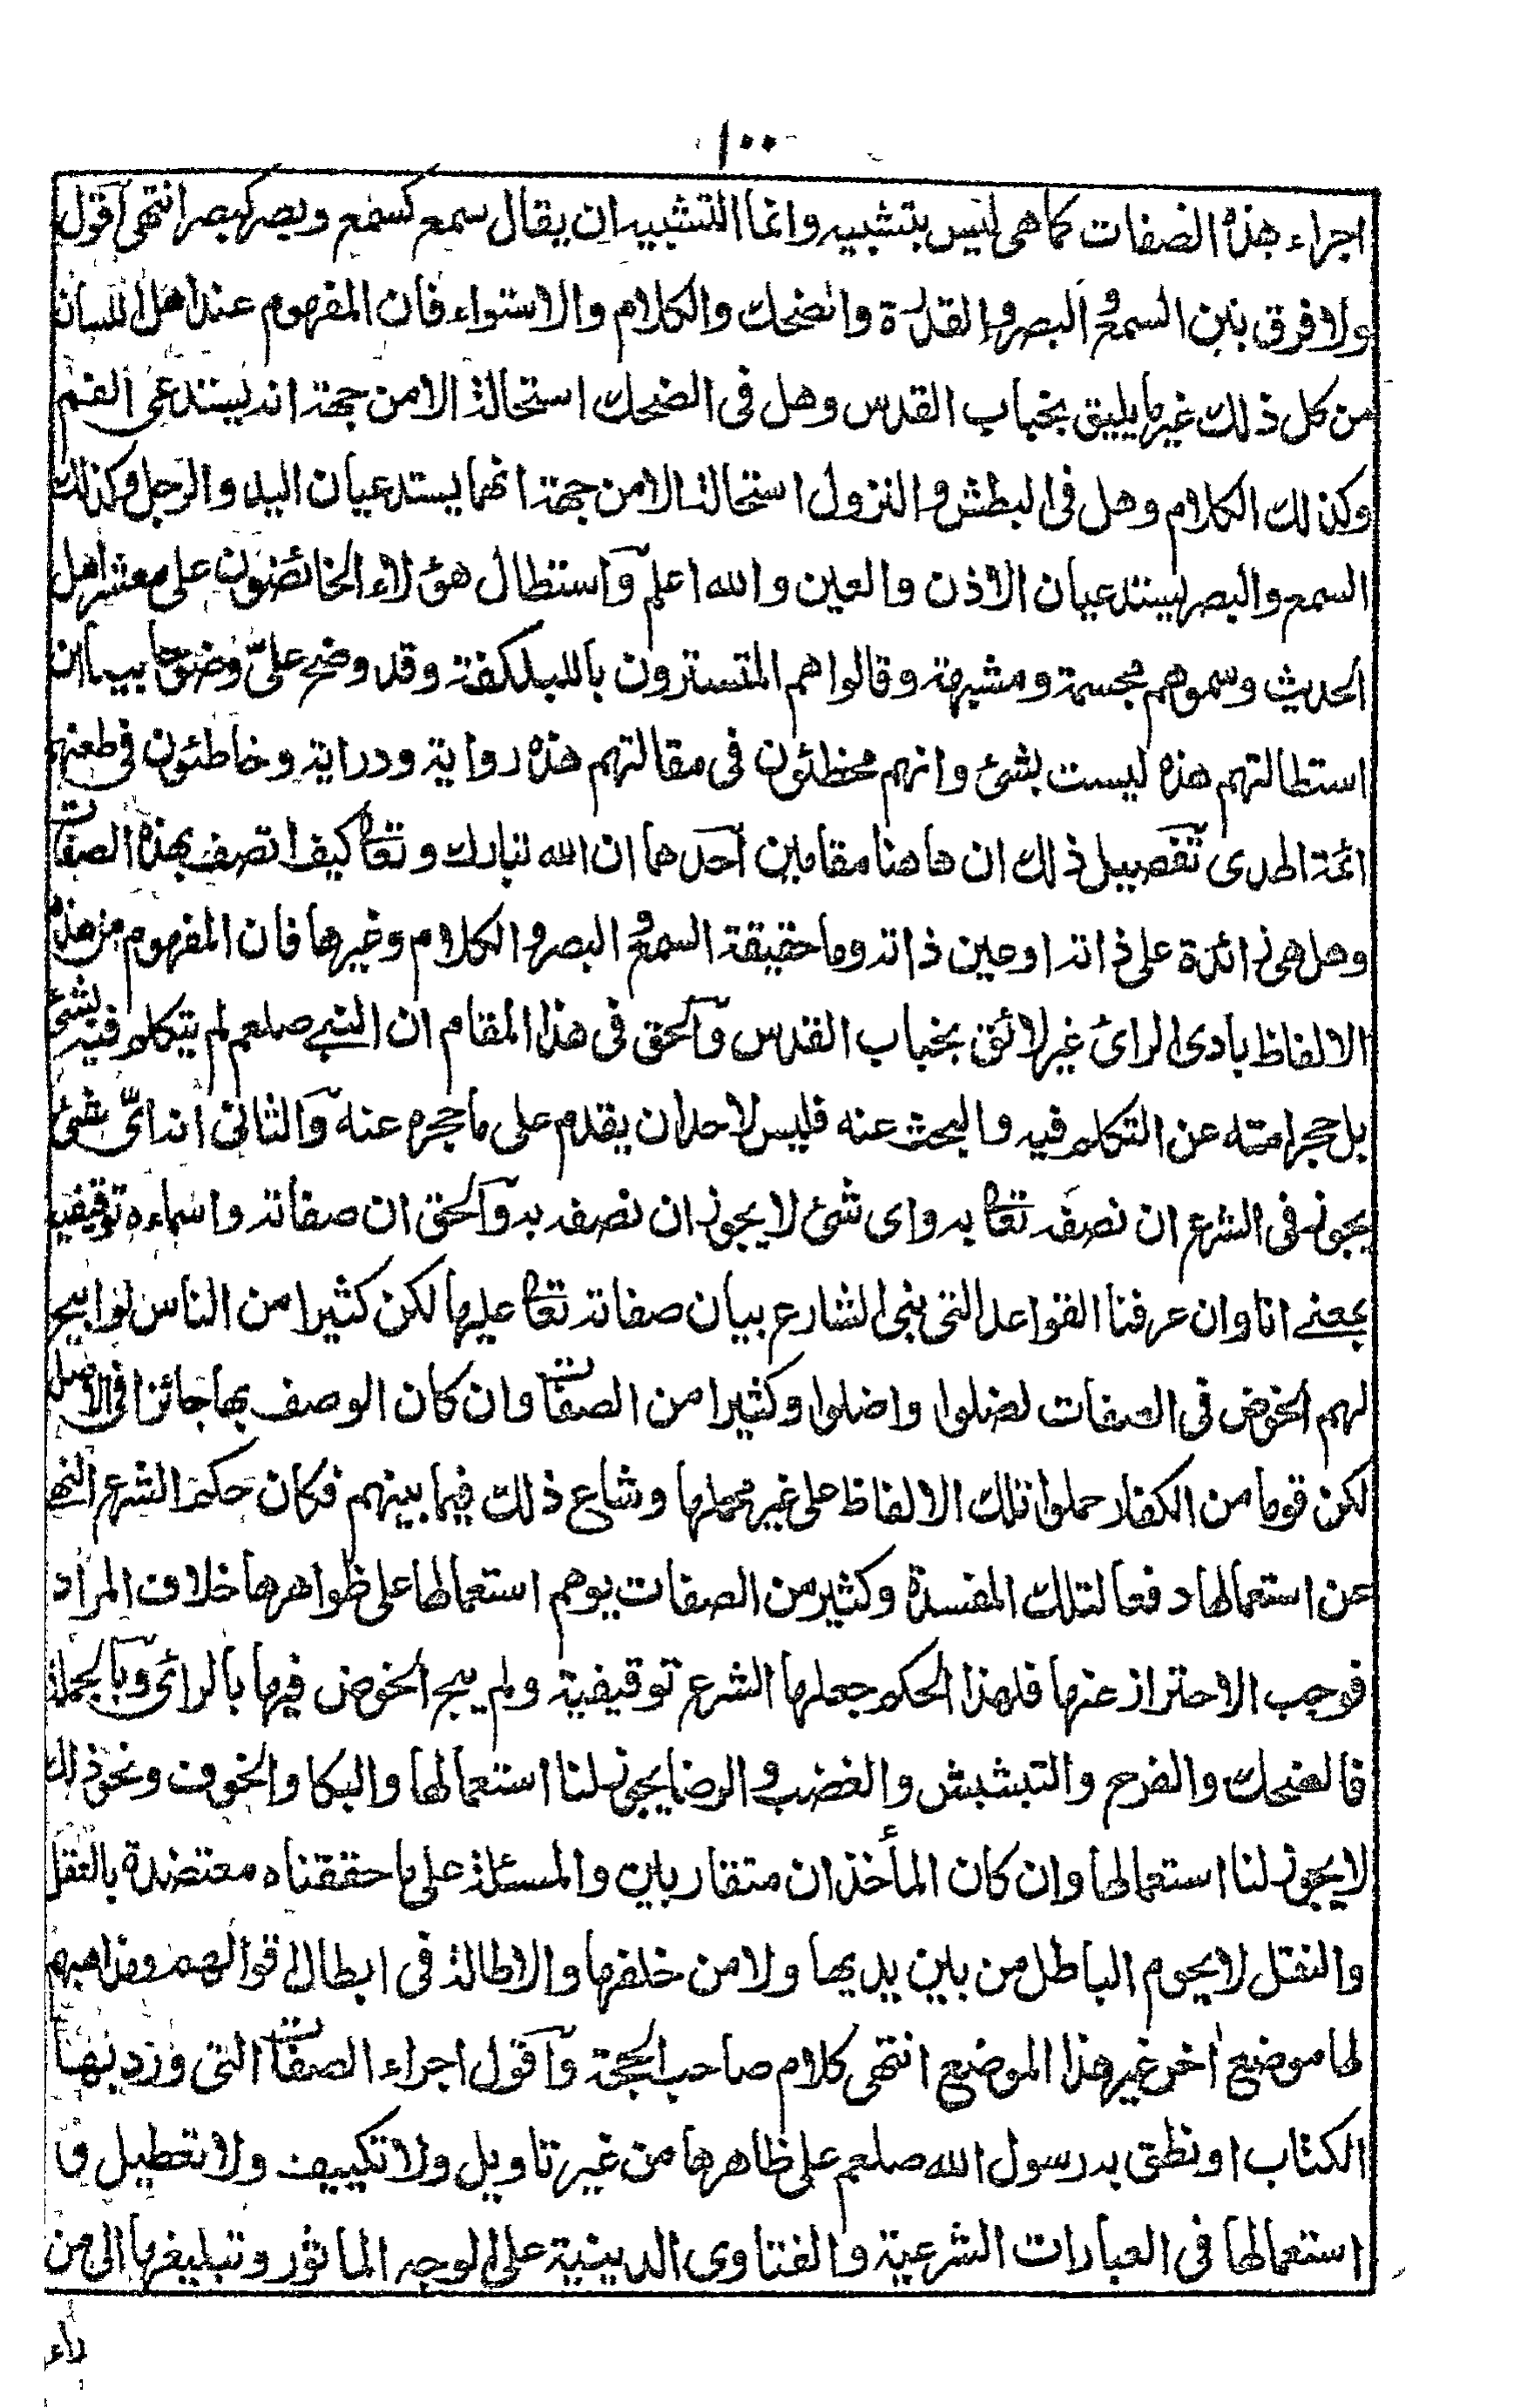 ١٠٠
اجراء هذه الصفات كما هي ليس بتشبيه وانما التشبيه ان يقال سمع كسمع وبصر كبصر انتهى اقول
ولا فرق بين السمع والبصر والقدرة والضحك والكلام والاستواء فان المفهوم عند اهل اللسان
من كل ذلك غير ما يليق بجناب القدس وهل في الضحك استحالة الا من جهة انه يستدعى الفم
وكذلك الكلام وهل في البطش والنزول استحالة الا من جهة انهما يستدعيان اليد والرجل وكذلك
السمع والبصر يستدعيان الاذن والعين والله اعلم واستطال هؤلاء الخائضون على معشر اهل
الحديث وسموهم مجسمة ومشبهة وقالوا هم المتسترون بالبلكفة وقد وضح علىّ وضوحا بينا ان
استطالتهم هذه ليست بشئ وانهم مخطئون في مقالتهم هذه رواية ودراية وخاطئون في طعنهم
ائمة الهدى تفصيل ذلك ان هاهنا مقامين احدهما ان الله تبارك وتعا كيف اتصف بهذه الصفات
وهل هي زائدة على ذاته او عين ذاته وما حقيقة السمع والبصر والكلام وغيرها فان المفهوم من هذه
الالفاظ بادى الرائ غير لائق بجناب القدس والحق في هذا المقام ان النبي صلعم لم يتكلم فيه بشئ
بل حجر امته عن التكلم فيه والبحث عنه فليس لاحد ان يقدم على ما حجره عنه والثاني انه اىّ شئ
يجوز في الشرع ان نصفه تعا به واى شئ لا يجوز ان نصفه به والحق ان صفاته واسماءه توقيفية
بمعنى انا وان عرفنا القواعد التي بنى الشارع بيان صفاته تعا عليها لكن كثيرا من الناس لو ابيح
لهم الخوض في الصفات لضلوا واضلوا وكثيرا من الصفات وان كان الوصف بها جائزا في الاصل
لكن قوما من الكفار حملوا تلك الالفاظ على غير محملها وشاع ذلك فيما بينهم فكان حكم الشرع النهى
عن استعمالها دفعا لتلك المفسدة وكثير من الصفات يوهم استعمالها على ظواهرها خلاف المراد
فوجب الاحتراز عنها فلهذا الحكم جعلها الشرع توقيفية ولم يبح الخوض فيها بالرائ وبالجملة
فالضحك والفرح والتبشبش والغضب والرضا يجوز لنا استعمالها والبكا والخوف ونحو ذلك
لا يجوز لنا استعمالها وان كان المأخذان متقاربين والمسئلة على ما حققناه معتضدة بالعقل
والنقل لا يحوم الباطل من بين يديها ولا من خلفها والاطالة في ابطال اقوالهم ومذاهبهم
لها موضع اخر غير هذا الموضع انتهى كلام صاحب الحجة واقول اجراء الصفات التي ورد بها
الكتاب او نطق به رسول الله صلعم على ظاهرها من غير تاويل ولا تكييف ولا تعطيل و
استعمالها في العبارات الشرعية والفتاوى الدينية على الوجه الماثور وتبليغها الى من